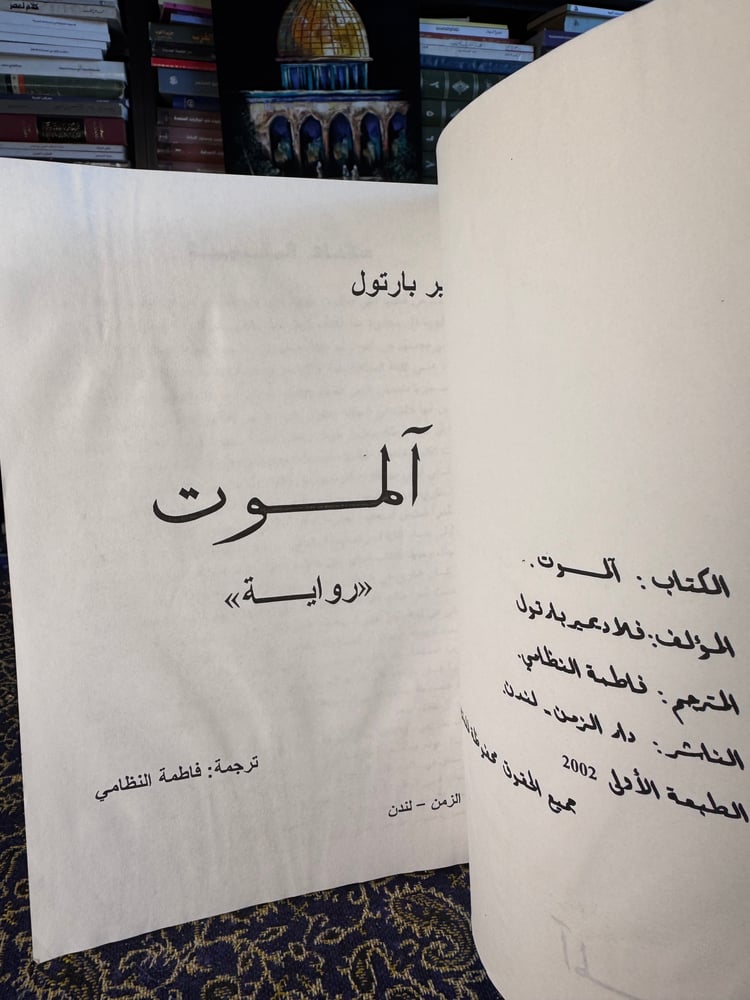 الكتاب: آلموت.
المؤلف: فلاديمير بارتول
المترجم: فاطمة النظامي.
الناشر: دار الزمن - لندن.
الطبعة الأولى 2002
جميع الحقوق محفوظة
ير بارتول
آلموت
«رواية»
ترجمة: فاطمة النظامي
الزمن - لندن